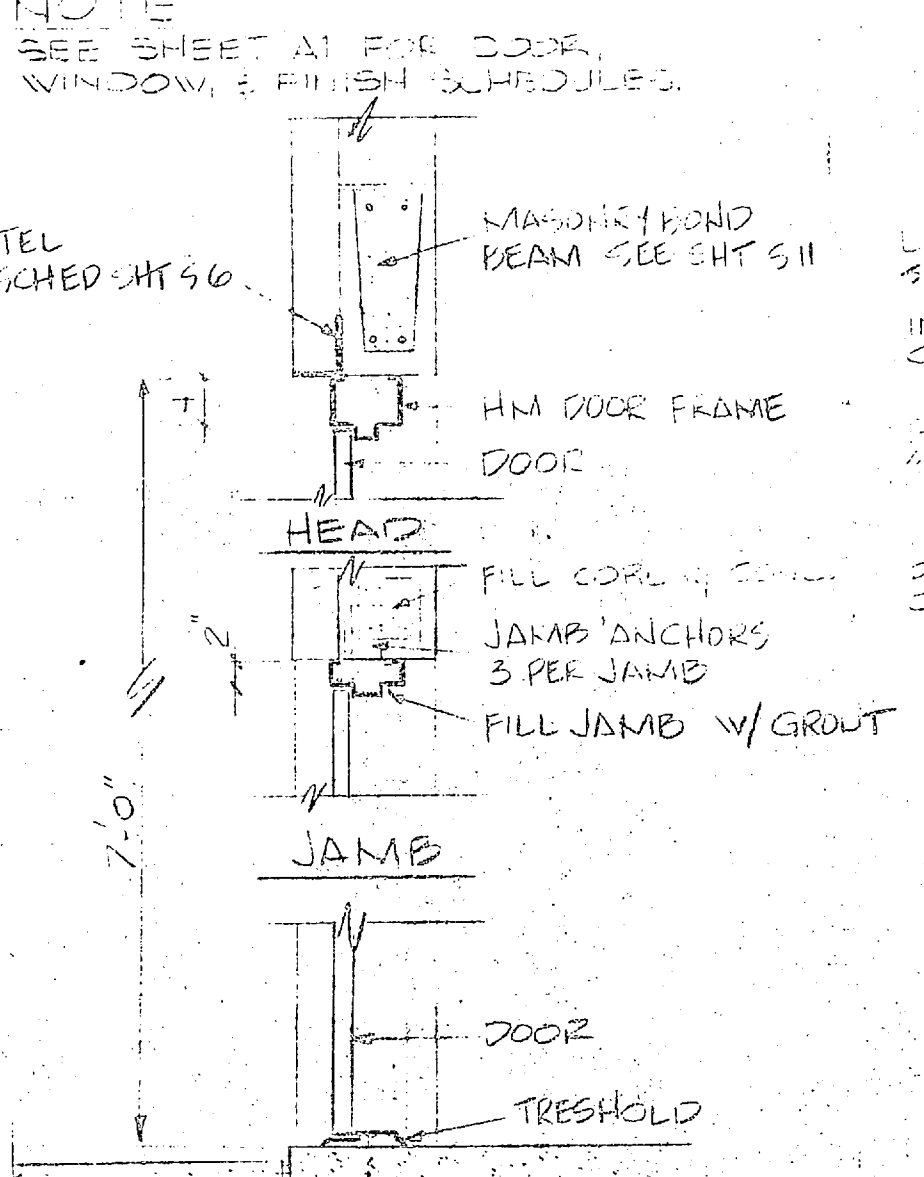 NOTE
SEE SHEET A1 FOR DOOR,
WINDOW, & FINISH SCHEDULES.
MASONRY BOND
BEAM SEE SHT S11
TEL
SCHED SHT S6
4
HM DOOR FRAME
DOOR
HEAD
FILL CORE W/
JAMB ANCHORS
3 PER JAMB
2"
FILL JAMB W/ GROUT
7'-0"
JAMB
DOOR
TRESHOLD